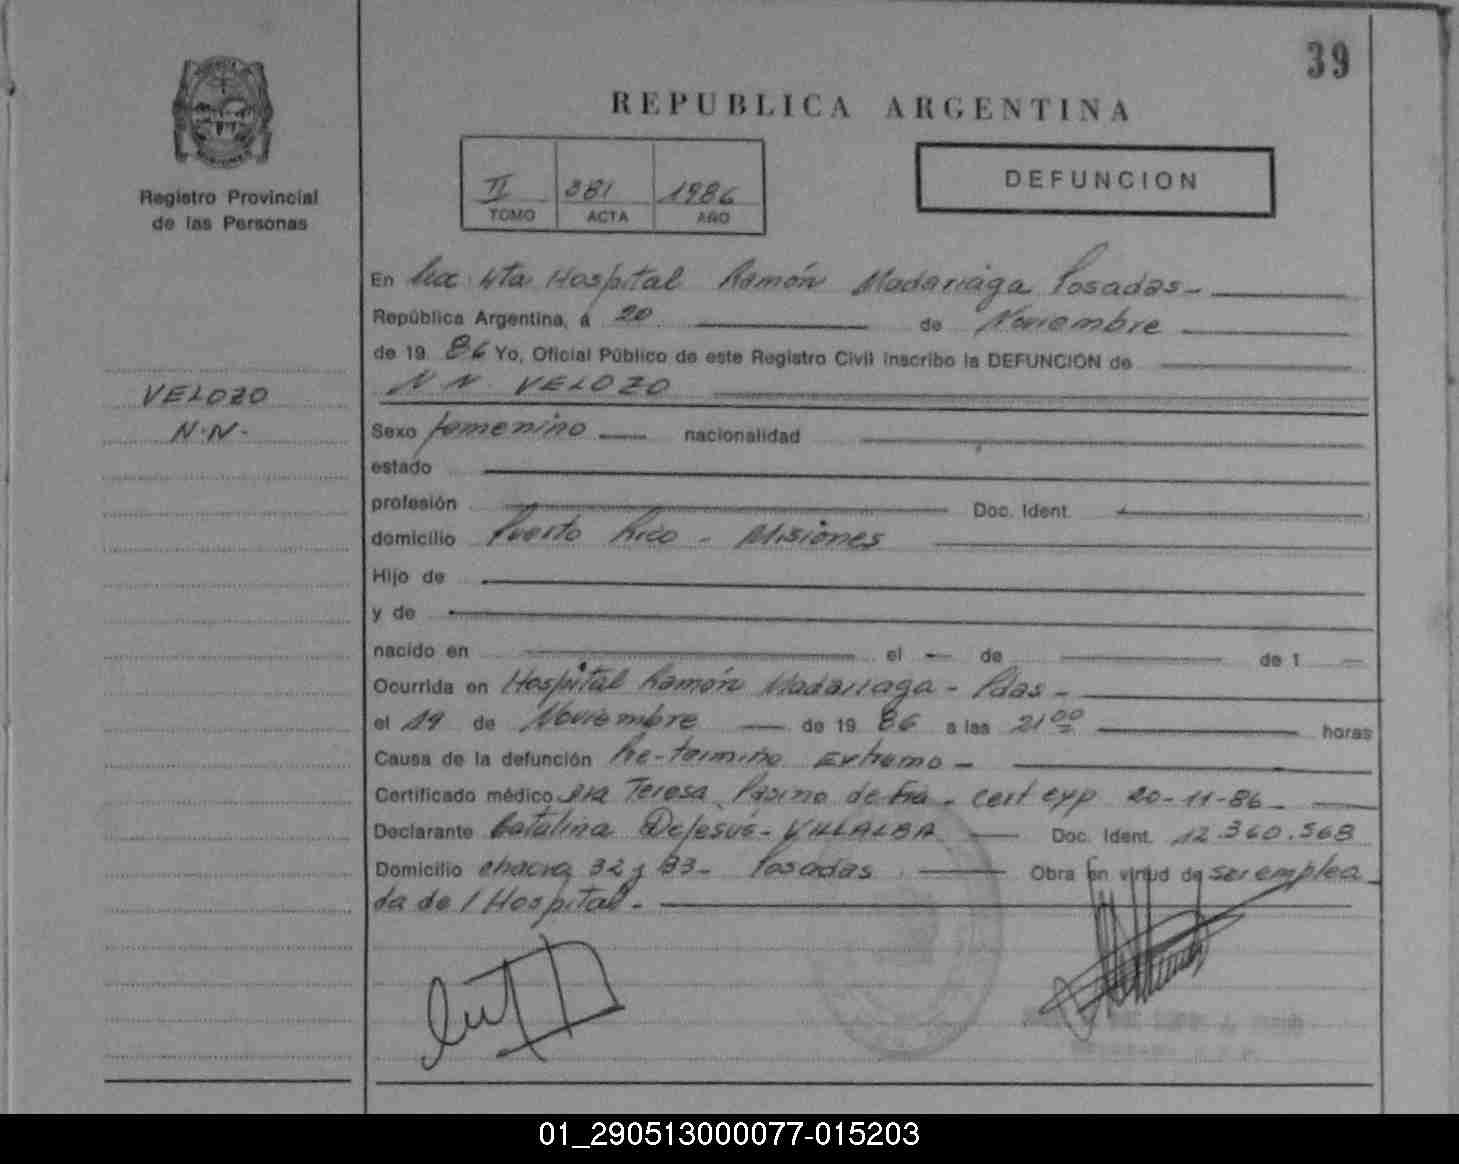 39
REPUBLICA ARGENTINA
II 381 1986
TOMO ACTA AÑO
DEFUNCION
Registro Provincial
de las Personas
VELOZO
N.N.
En Sec. 4ta Hospital Ramón Madariaga Posadas
República Argentina, a 20 de Noviembre
de 19 86 Yo, Oficial Público de este Registro Civil inscribo la DEFUNCION de
N N VELOZO
Sexo femenino nacionalidad
estado
profesión Doc. Ident.
domicilio Puerto Rico - Misiones
Hijo de
y de
nacido en el de de 1
Ocurrida en Hospital Ramón Madariaga - Pdas -
el 19 de Noviembre de 19 86 a las 21 00 horas
Causa de la defunción Pre-termino Extremo -
Certificado médico Dra Teresa de cert exp 20-11-86
Declarante Catalina DeJesús - VILLALBA Doc. Ident. 12.360.568
Domicilio chacra 32 y 33 - Posadas Obra en virtud de ser emplea
da del Hospital -
01_290513000077-015203